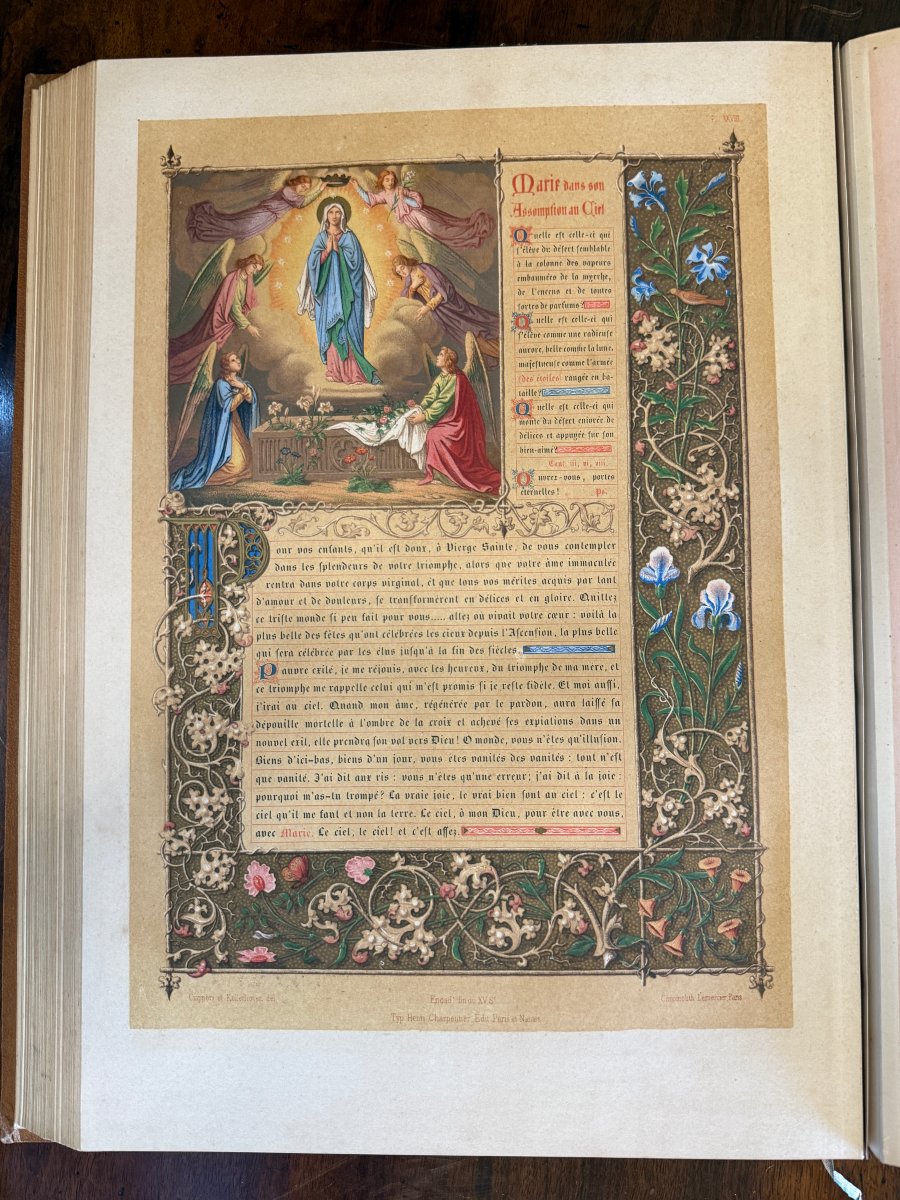 Pl. XXVIII
Marie dans son
Assomption au Ciel
Quelle eſt celle-ci qui
ſ'élève du déſert ſemblable
à la colonne des vapeurs
embaumées de la myrrhe,
de l'encens et de toutes
ſortes de parfums?
Quelle eſt celle-ci qui
ſ'élève comme une radieuſe
aurore, belle comme la lune,
majeſtueuſe comme l'armée
(des étoiles) rangée en ba-
taille?
Quelle eſt celle-ci qui
monte du déſert enivrée de
délices et appuyée ſur ſon
bien-aimé?
Cant. iii, vi, viii.
Ouvrez-vous, portes
éternelles! Ps.
Pour vos enfants, qu'il eſt doux, ô Vierge Sainte, de vous contempler
dans les ſplendeurs de votre triomphe, alors que votre âme immaculée
rentra dans votre corps virginal, et que tous vos mérites acquis par tant
d'amour et de douleurs, ſe tranſformèrent en délices et en gloire. Quittez
ce triſte monde ſi peu fait pour vous..... allez où vivait votre cœur : voilà la
plus belle des fêtes qu'ont célébrées les cieux depuis l'Aſcenſion, la plus belle
qui ſera célébrée par les élus juſqu'à la fin des ſiècles.
Pauvre exilé, je me réjouis, avec les heureux, du triomphe de ma mère, et
ce triomphe me rappelle celui qui m'eſt promis ſi je reſte fidèle. Et moi auſſi,
j'irai au ciel. Quand mon âme, régénérée par le pardon, aura laiſſé ſa
dépouille mortelle à l'ombre de la croix et achevé ſes expiations dans un
nouvel exil, elle prendra ſon vol vers Dieu! O monde, vous n'êtes qu'illuſion.
Biens d'ici-bas, biens d'un jour, vous êtes vanités des vanités : tout n'eſt
que vanité. J'ai dit aux ris : vous n'êtes qu'une erreur; j'ai dit à la joie :
pourquoi m'as-tu trompé? La vraie joie, le vrai bien ſont au ciel : c'eſt le
ciel qu'il me faut et non la terre. Le ciel, ô mon Dieu, pour être avec vous,
avec Marie. Le ciel, le ciel! et c'eſt aſſez.
Ciappori et Kellerhoven, del.
Encad.t fin du XV.S.
Chromolith. Lemercier Paris
Typ. Henri Charpentier Edit. Paris et Nantes